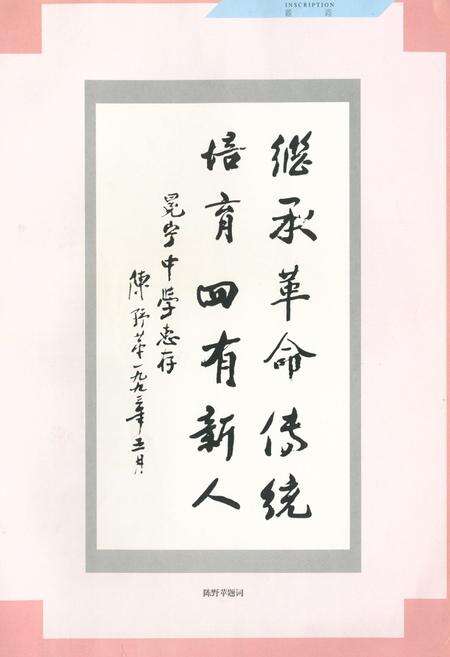 INSCRIPTION
继承革命传统
培育四有新人
冕宁中学惠存
陈野苹一九九三年三月
陈野苹题词